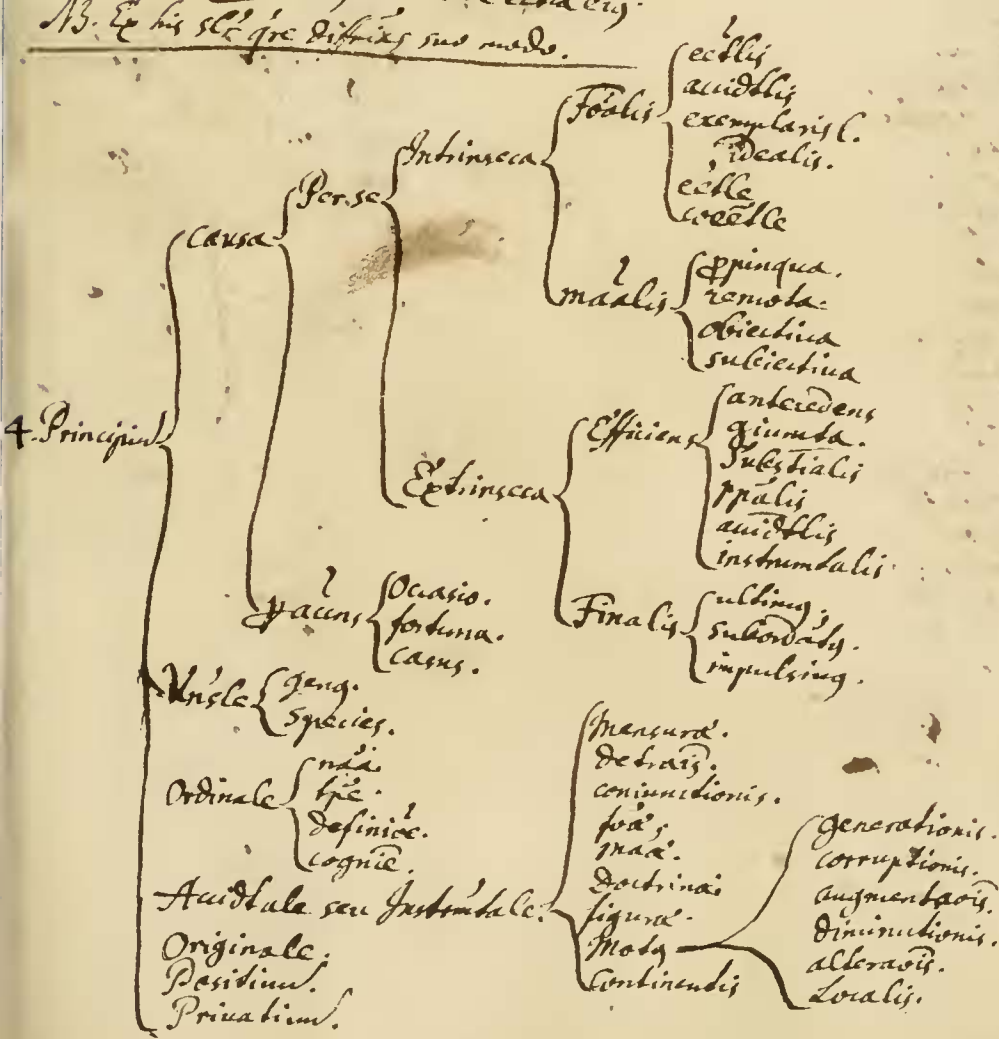 NB. Ex his slẽ qre diũs suo modo.
4. Principiũ
Causa
Per se
Intrinseca
Foālis
ectlis
accidtlis
exemplaris l.
idealis.
ectle
coectle
maālis
ppinqua.
remota.
obiectiua
subiectiua
Extrinseca
Efficiens
antecedens
giuncta.
Substialis
ppālis
accidtlis
instrumtalis
Finalis
ultimus.
subordātus.
impulsius.
p accns
Occasio.
fortuna.
casus.
Vnsle
genus.
species.
Ordinale
naā.
tpē.
definiõe.
cogniē.
Accidtale seu Instrumtale.
mensuræ.
detraīs.
coniunctionis.
foæ,
maæ.
Doctrinæ
figuræ.
Motus
generationis.
corruptionis.
augmentaois.
diminutionis.
alteraois.
Localis.
Continentis
Originale.
Positiuũ.
Priuatiuũ.